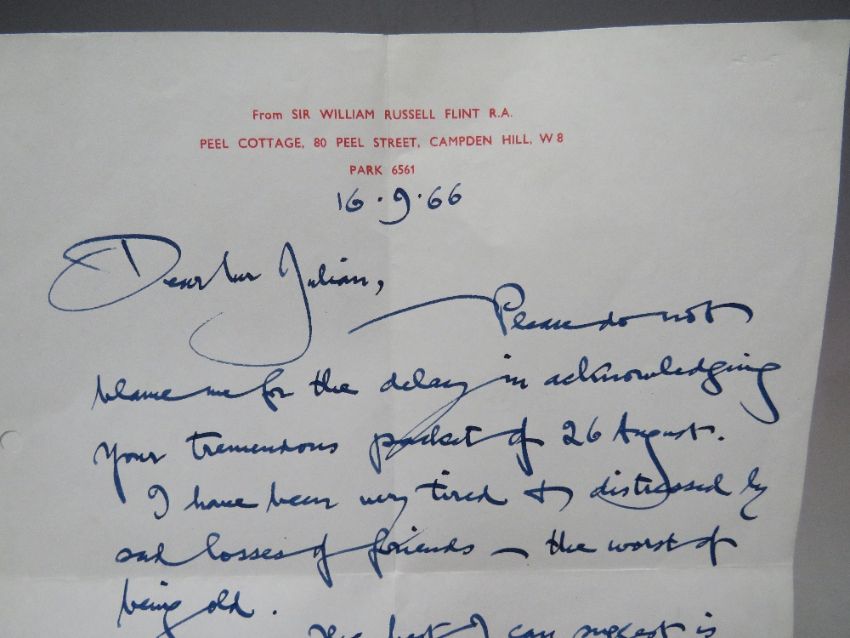 From SIR WILLIAM RUSSELL FLINT R.A.
PEEL COTTAGE, 80 PEEL STREET, CAMPDEN HILL, W 8
PARK 6561
16.9.66
Dear Mr Julian,
Please do not
blame me for the delay in acknowledging
your tremendous packet of 26 August.
I have been very tired & distressed by
sad losses of friends – the worst of
being old.
The best I can suggest is